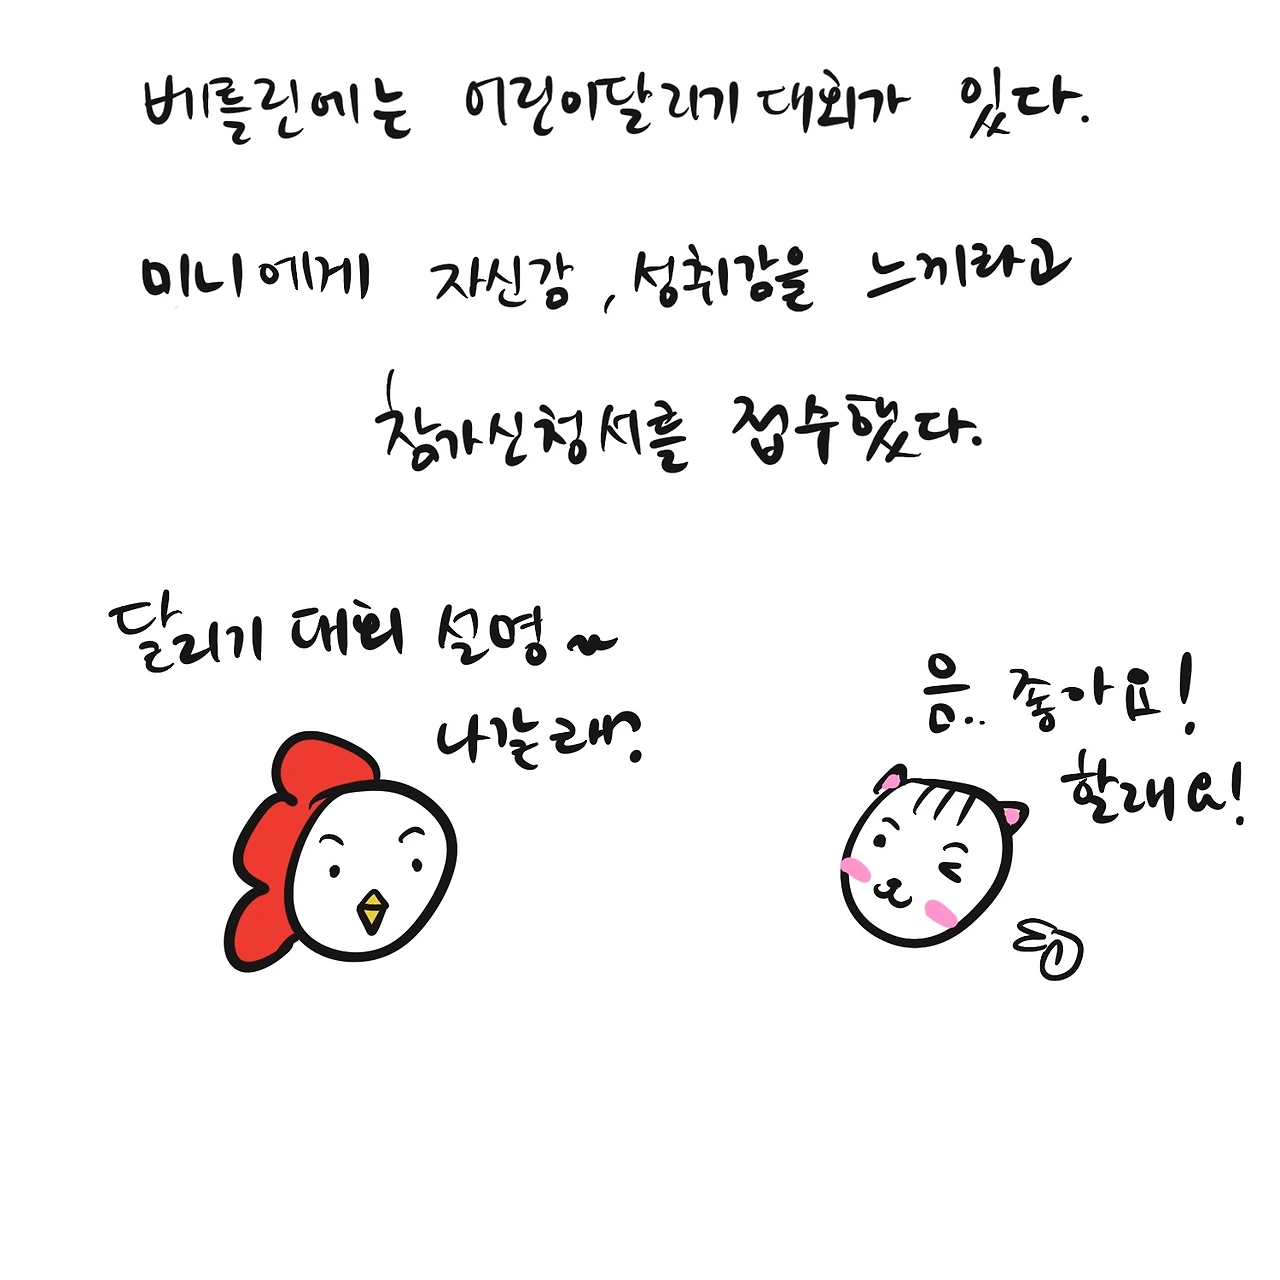 베를린에는 어린이달리기 대회가 있다.
미니에게 자신감, 성취감을 느끼라고
참가신청서를 접수했다.
달리기 대회 설명~
나갈래?
음.. 좋아요!
할래요!